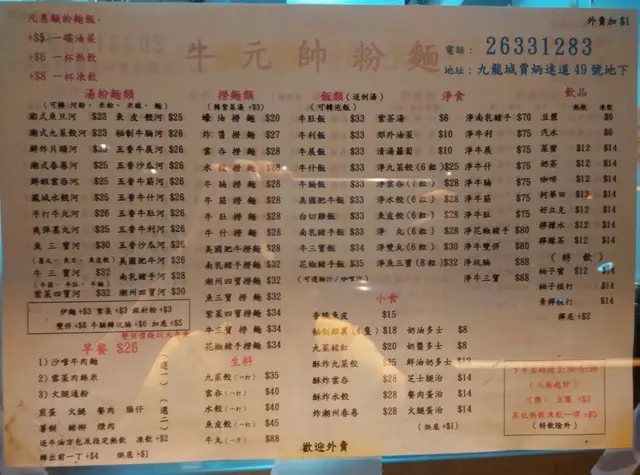 凡惠顧粉麵飯
+$5 一碟油菜
+$6 一杯熱飲
+$8 一杯凍飲
牛元帥粉麵
外賣加 $1
電話： 26331283
地址：九龍城賈炳達道 49 號地下
湯粉麵類
潮式魚旦河 $23
潮式九菜餃河 $23
鮮炸片頭河 $23
潮式春卷河 $25
鮮蝦雲吞河 $25
鳳城水餃河 $25
手打牛丸河 $26
爽彈墨丸河 $25
魚三寶河 $30
牛三寶河 $32
紫菜四寶河 $32
魚皮餃河 $25
秘制牛腩河 $26
五香牛展河 $26
五香沙瓜河 $26
五香牛筋河 $26
五香牛什河 $26
五香牛肚河 $26
五香牛利河 $26
五香沙瓜河 $26
美國肥牛河 $26
南乳豬手河 $28
潮州四寶河 $30
伊麵 +$3 紫菜 +$3 跟針粉 +$3
雙併 +$6 牛腩轉坑腩 +$6 加底 +$5
撈麵類
(轉紫菜湯 +$3)
蠔油撈麵 $20
炸醬撈麵 $27
雲吞撈麵 $28
水餃撈麵 $28
牛腩撈麵 $28
牛筋撈麵 $28
牛肚撈麵 $28
牛什撈麵 $28
美國肥牛撈麵 $28
南乳豬手撈麵 $30
潮州四寶撈麵 $32
魚三寶撈麵 $32
紫菜四寶撈麵 $34
牛三寶撈麵 $34
花椒豬手撈麵 $34
生料
九菜餃 (一打) $35
雲吞 (一打) $40
水餃 (一打) $40
魚皮餃 (一打) $45
牛丸 (一斤) $88
飯類 (送例湯)
(可轉泡飯)
牛肚飯 $33
牛利飯 $33
牛展飯 $33
牛什飯 $33
牛腩飯 $33
牛筋飯 $33
美國肥牛飯 $33
白切雞飯 $33
南乳豬手飯 $33
牛三寶飯 $34
花椒豬手飯 $35
淨食
紫菜湯 $6
郊外油菜 $10
清湯蘿蔔 $10
淨九菜餃 (6 粒) $25
淨雲吞 (7 粒) $28
淨水餃 (6 粒) $28
魚皮餃 (6 粒) $28
淨丸 (6 粒) $28
淨雙丸 (6 粒) $30
淨魚三寶 (8 粒) $32
淨南乳豬手 $70
淨牛利 $75
淨牛展 $75
淨牛什 $75
淨牛腩 $75
淨牛筋 $75
淨牛肚 $75
淨花椒豬手 $80
淨牛雙併 $80
淨坑腩 $88
淨牛三寶 $88
飲品
熱飲 凍飲
豆漿 $6
汽水 $6
菜蜜 $12 $14
奶茶 $12 $14
咖啡 $12 $14
柯華田 $12 $14
好立克 $12 $14
檸檬水 $12 $14
檸檬茶 $12 $14
(特飲)
柚子蜜 $12 $14
柚子梳打 $14
青檸梳打 $14
檸底 +$2
小食
香脆魚皮 $15
$18
九菜粒 $20
酥炸九菜餃 $25
酥炸雲吞 $28
酥炸水餃 $28
炸潮州春卷 $28
奶油多士 $8
奶醬多士 $8
鮮油奶多士 $12
芝士腿治 $14
餐肉蛋治 $14
火腿蛋治 $14
(烘底 +$1)
早餐 $26
1) 沙嗲牛肉麵
2) 雪菜肉絲米
3) 火腿通粉
(選一)
煎蛋 火腿 餐肉 腸仔
薯餅 豬柳 煙肉
(選二)
送牛油方包及指定熱飲 凍飲 +$2
轉出前一丁 +$4 烘底 +$1
下午茶時段 2:30-5:30
(入座起計)
可熱、豆漿 +$3
其他熱飲凍飲一樣 +$5
(特飲除外)
歡迎外賣